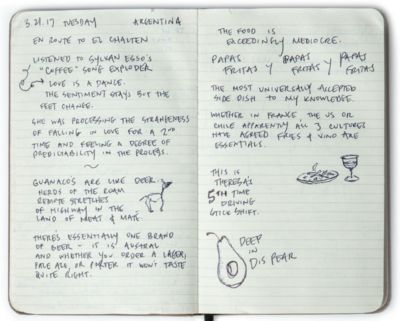 3.21.17 TUESDAY ARGENTINA
EN ROUTE TO EL CHALTEN
LISTENED TO SYLVAN ESSO'S
"COFFEE" SONG EXPLODER
LOVE IS A DANCE.
THE SENTIMENT STAYS BUT THE
FEET CHANGE.
SHE WAS PROCESSING THE STRANGENESS
OF FALLING IN LOVE FOR A 2ND
TIME AND FEELING A DEGREE OF
PREDICTABILITY IN THE PROCESS.
GUANACOS ARE LIKE DEER.
HERDS OF THE ROAM
REMOTE STRETCHES
OF HIGHWAY IN THE
LAND OF MEAT & MATE
THERE'S ESSENTIALLY ONE BRAND
OF BEER - IT IS AUSTRAL
AND WHETHER YOU ORDER A LAGER,
PALE ALE, OR PORTER IT WON'T TASTE
QUITE RIGHT.
THE FOOD IS
EXCEEDINGLY MEDIOCRE.
PAPAS PAPAS PAPAS
FRITAS Y FRITAS Y FRITAS
THE MOST UNIVERSALLY ACCEPTED
SIDE DISH TO MY KNOWLEDGE.
WHETHER IN FRANCE, THE US OR
CHILE APPARENTLY ALL 3 CULTURES
HAVE AGREED FRIES & VINO ARE
ESSENTIALS.
THIS IS
THERESA'S
5TH TIME
DRIVING
STICK SHIFT.
DEEP
IN
DISPEAR